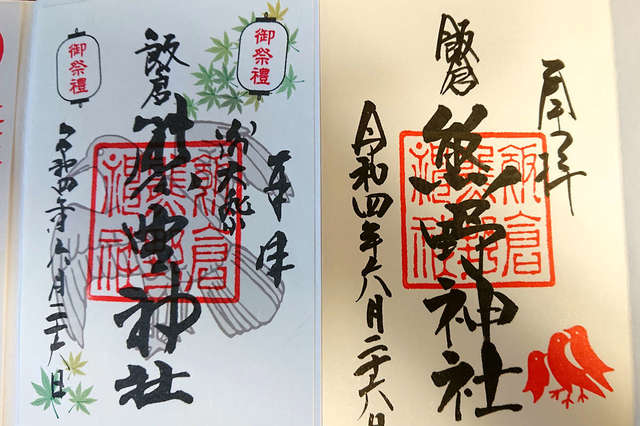 奉拝
飯倉
熊野神社
飯倉
熊野
神社
令和四年六月二十六日
御祭禮
奉拝
大祭
飯倉
熊野神社
飯倉
熊野
神社
御祭禮
令和四年六月二十六日